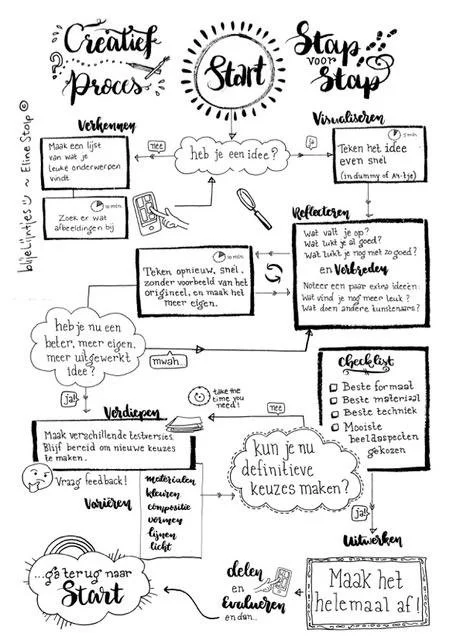 Creatief
Proces
Start
Stap
voor
Stap
blije lijntjes ~ Eline Stolp ©
Verkennen
Maak een lijst
van wat je
leuke onderwerpen
vindt
10 min.
Zoek er wat
afbeeldingen bij
nee
heb je een idee?
ja
Visualiseren
5 min.
Teken het idee
even snel
(in dummy of A4-tje)
Reflecteren
Wat valt je op?
Wat lukt je al goed?
Wat lukt je nog niet zo goed?
en Verbreden
Noteer een paar extra ideeën.
Wat vind je nog meer leuk?
Wat doen andere kunstenaars?
10 min.
Teken opnieuw, snel,
zonder voorbeeld van het
origineel, en maak het
meer eigen.
heb je nu een
beter, meer eigen,
meer uitgewerkt
idee?
mwah..
ja!
Checklist
Beste formaat
Beste materiaal
Beste techniek
Mooiste
beeldaspecten
gekozen
take the
time you
need!
nee
Verdiepen
Maak verschillende testversies.
Blijf bereid om nieuwe keuzes
te maken.
Vraag feedback!
Variëren
materialen
kleuren
compositie
vormen
lijnen
licht
kun je nu
definitieve
keuzes maken?
ja!
Uitwerken
Maak het
helemaal af!
delen
en
Evalueren
en dan...
...ga terug naar
Start